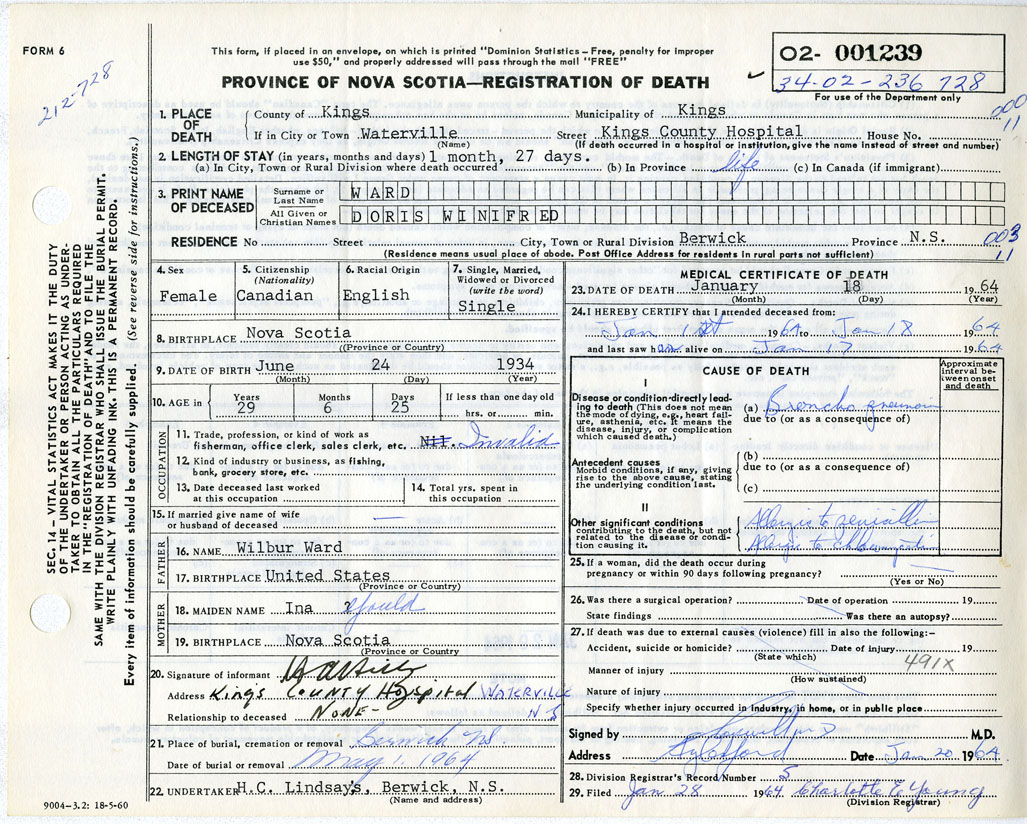 FORM 6
This form, if placed in an envelope, on which is printed "Dominion Statistics – Free, penalty for improper
use $50," and properly addressed will pass through the mail "FREE"
PROVINCE OF NOVA SCOTIA—REGISTRATION OF DEATH
02- 001239
34-02-236 728
For use of the Department only
212-728
000
11
1. PLACE OF DEATH
County of Kings Municipality of Kings
If in City or Town Waterville Street Kings County Hospital House No.
(Name) (If death occurred in a hospital or institution, give the name instead of street and number)
2. LENGTH OF STAY (in years, months and days) 1 month, 27 days.
(a) In City, Town or Rural Division where death occurred (b) In Province life (c) In Canada (if immigrant)
3. PRINT NAME OF DECEASED
Surname or Last Name WARD
All Given or Christian Names DORIS WINIFRED
RESIDENCE No Street City, Town or Rural Division Berwick Province N.S. 003
11
(Residence means usual place of abode. Post Office Address for residents in rural parts not sufficient)
4. Sex Female
5. Citizenship (Nationality) Canadian
6. Racial Origin English
7. Single, Married, Widowed or Divorced (write the word) Single
8. BIRTHPLACE Nova Scotia
((Province or Country)
9. DATE OF BIRTH June 24 1934
(Month) (Day) (Year)
10. AGE in Years Months Days If less than one day old
29 6 25 hrs. or min.
OCCUPATION
11. Trade, profession, or kind of work as
fisherman, office clerk, sales clerk, etc. Nil. Invalid
12. Kind of industry or business, as fishing,
bank, grocery store, etc.
13. Date deceased last worked
at this occupation
14. Total yrs. spent in
this occupation
15. If married give name of wife
or husband of deceased —
FATHER
16. NAME Wilbur Ward
17. BIRTHPLACE United States
(Province or Country)
MOTHER
18. MAIDEN NAME Ina ? Gould
19. BIRTHPLACE Nova Scotia
(Province or Country
20. Signature of informant
Address King's County Hospital WATERVILLE
N S
Relationship to deceased NONE-
21. Place of burial, cremation or removal Berwick NS.
Date of burial or removal May 1, 1964
22. UNDERTAKER H.C. Lindsay's, Berwick, N.S.
(Name and address)
9004–3.2: 18-5-60
MEDICAL CERTIFICATE OF DEATH
23. DATE OF DEATH January 18 1964
(Month) (Day) (Year)
24. I HEREBY CERTIFY that I attended deceased from:
Jan 1st 1964 to Jan 18 1964
and last saw her alive on Jan 17 1964
CAUSE OF DEATH
Approximate interval between onset and death
I
Disease or condition directly leading to death (This does not mean the mode of dying, e.g., heart failure, asthenia, etc. It means the disease, injury, or complication which caused death.)
(a) Broncho
due to (or as a consequence of)
Antecedent causes
Morbid conditions, if any, giving rise to the above cause, stating the underlying condition last.
(b)
due to (or as a consequence of)
(c)
II
Other significant conditions
contributing to the death, but not related to the disease or condition causing it.
Allergic to penicillin
Allergic to
25. If a woman, did the death occur during
pregnancy or within 90 days following pregnancy? —
(Yes or No)
26. Was there a surgical operation? Date of operation 19
State findings Was there an autopsy?
27. If death was due to external causes (violence) fill in also the following:–
Accident, suicide or homicide? Date of injury 19
(State which) 491X
Manner of injury
(How sustained)
Nature of injury
Specify whether injury occurred in industry, in home, or in public place
Signed by M.D.
Address Date Jan 20 1964
28. Division Registrar's Record Number 5
29. Filed Jan 28 1964 Charlotte E Young
(Division Registrar)
SEC. 14 – VITAL STATISTICS ACT MAKES IT THE DUTY
OF THE UNDERTAKER OR PERSON ACTING AS UNDER-
TAKER TO OBTAIN ALL THE PARTICULARS REQUIRED
IN THE "REGISTRATION OF DEATH" AND TO FILE THE
SAME WITH THE DIVISION REGISTRAR WHO SHALL ISSUE THE BURIAL PERMIT.
WRITE PLAINLY WITH UNFADING INK. THIS IS A PERMANENT RECORD.
Every item of information should be carefully supplied. (See reverse side for instructions.)